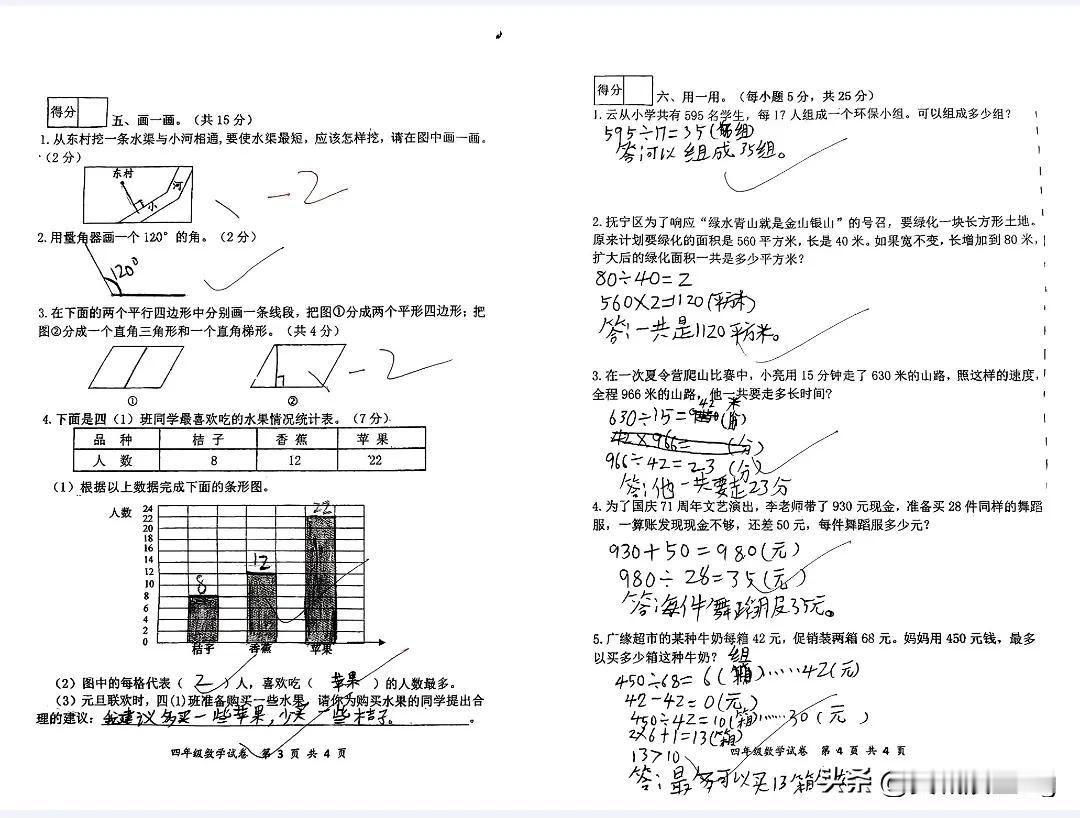 得分
五、画一画。（共 15 分）
1.从东村挖一条水渠与小河相通,要使水渠最短，应该怎样挖，请在图中画一画。
（2 分）
东村
河
小
-2
2.用量角器画一个 120° 的角。（2 分）
120°
3.在下面的两个平行四边形中分别画一条线段，把图①分成两个平形四边形；把
图②分成一个直角三角形和一个直角梯形。（共 4 分）
-2
① ②
4.下面是四（1）班同学最喜欢吃的水果情况统计表。（7 分）
品 种 桔 子 香 蕉 苹 果
人 数 8 12 22
（1）根据以上数据完成下面的条形图。
人数
24
22
20
18
16
14
12
10
8
6
4
2
0
8
12
22
桔子 香蕉 苹果
（2）图中的每格代表（ 2 ）人，喜欢吃（ 苹果 ）的人数最多。
（3）元旦联欢时，四(1)班准备购买一些水果，请你为购买水果的同学提出合
理的建议：我建议多买一些苹果，少买一些桔子。
四年级数学试卷 第 3 页 共 4 页
得分
六、用一用。（每小题 5 分，共 25 分）
1.云从小学共有 595 名学生，每 17 人组成一个环保小组。可以组成多少组？
595÷17=35(组)
答:可以组成35组。
2.抚宁区为了响应“绿水青山就是金山银山”的号召，要绿化一块长方形土地。
原来计划要绿化的面积是 560 平方米，长是 40 米。如果宽不变，长增加到 80 米，
扩大后的绿化面积一共是多少平方米？
80÷40=2
560×2=1120(平方米)
答:一共是1120平方米。
3.在一次夏令营爬山比赛中，小亮用 15 分钟走了 630 米的山路，照这样的速度，
全程 966 米的山路，他一共要走多长时间？
630÷15=42(米)
42×966= (分)
966÷42=23(分)
答:他一共要走23分
4.为了国庆 71 周年文艺演出，李老师带了 930 元现金，准备买 28 件同样的舞蹈
服，一算账发现现金不够，还差 50 元，每件舞蹈服多少元？
930+50=980(元)
980÷28=35(元)
答:每件舞蹈服35元。
5.广缘超市的某种牛奶每箱 42 元，促销装两箱 68 元。妈妈用 450 元钱，最多
以买多少箱这种牛奶？
450÷68=6(组)……42(元)
42-42=0(元)
450÷42=10(箱)……30(元)
2×6+1=13(箱)
13>10
四年级数学试卷 第 4 页 共 4 页
答:最多可以买13箱
头条